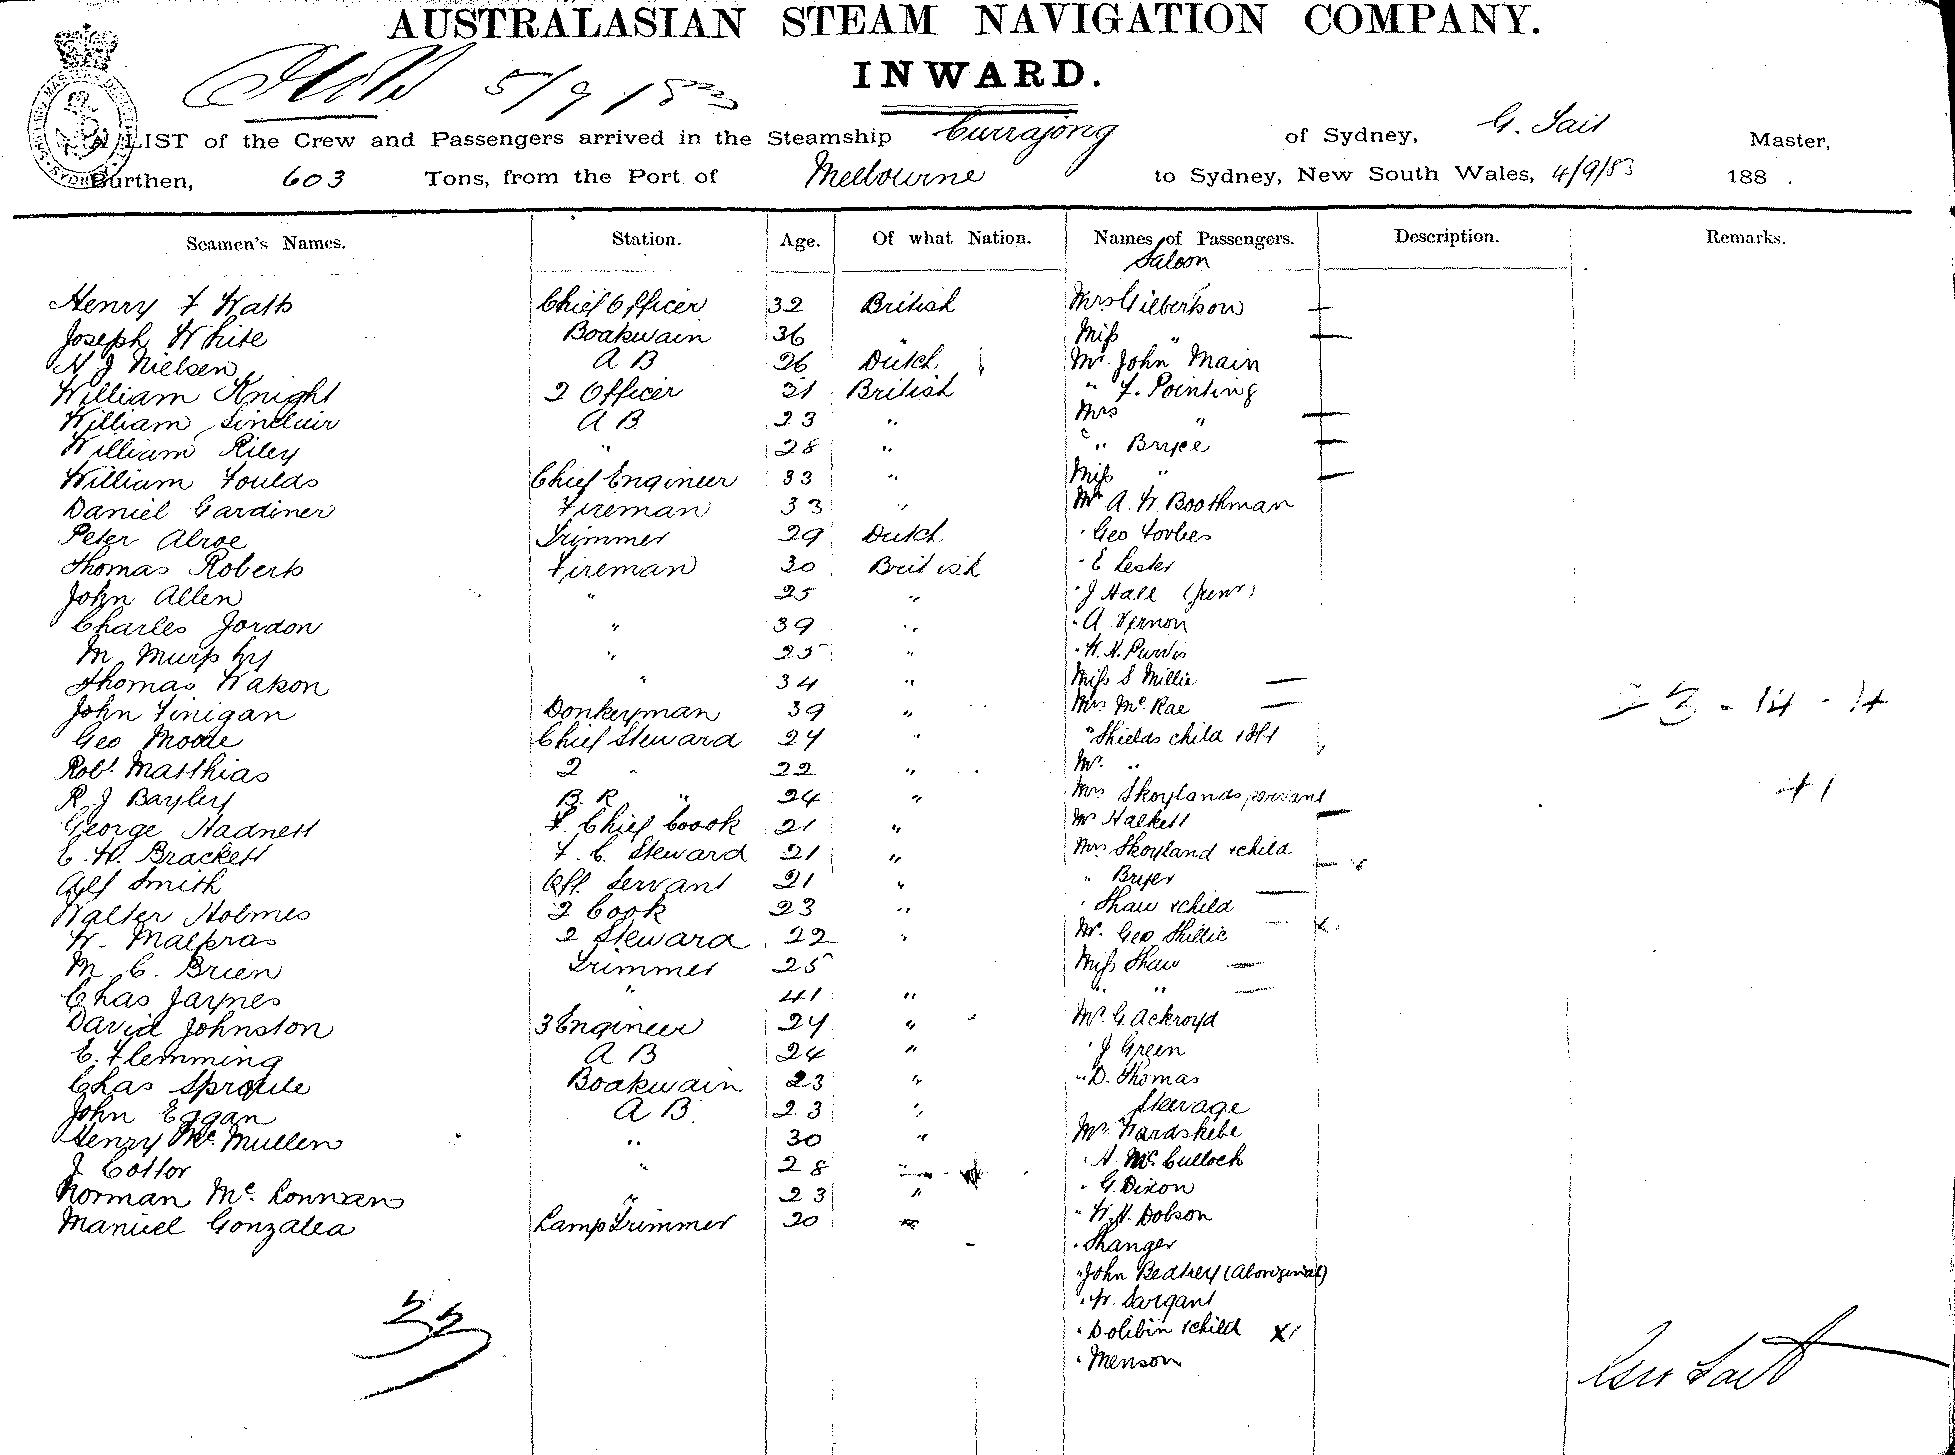 AUSTRALASIAN STEAM NAVIGATION COMPANY.
INWARD.
5/9/83
A LIST of the Crew and Passengers arrived in the Steamship Currajong of Sydney, G. Sait Master,
Burthen, 603 Tons, from the Port of Melbourne to Sydney, New South Wales, 4/9/83 188 .
Seamen's Names. Station. Age. Of what Nation. Names of Passengers. Description. Remarks.
Saloon
Henry F Watts Chief Officer 32 British Mrs Gilbertson
Joseph White Boatswain 36 " Miss "
N J Nielsen A B 26 Dutch Mr John Main
William Knight 2 Officer 31 British " F. Pointing
William Sinclair A B 23 " Mrs "
William Riley " 28 " " Bryce
William Foulds Chief Engineer 33 " Miss "
Daniel Gardiner Fireman 33 " Mr A. W Boothman
Peter Alroe Trimmer 29 Dutch " Geo Forbes
Thomas Roberts Fireman 30 British " E Lester
John Allen " 25 " " J Hall (Junr)
Charles Jordon " 39 " " A Vernon
M Murphy " 25 " " W. H. Purvis
Thomas Watson " 34 " Miss S Millie
John Finigan Donkeyman 39 " Mrs McRae
Geo Moode Chief Steward 24 " " Shields child
Robt Matthias 2 " 22 " Mr "
R J Bayley B. R " 24 " Mrs Skoylands servant
George Hadnett Chief Coook 21 " Mr Halkett
E. W. Brackett F. C. Steward 21 " Mrs Skoyland & child
Alf Smith Off. Servant 21 " " Bryer
Walter Holmes 2 Cook 23 " " Shaw & child
W. Malpras 2 Steward 22 " Mr. Geo Shillie
M C. Brien Trimmer 25 " Miss Shaw
Chas Jaynes " 41 " " "
David Johnston 3 Engineer 24 " Mr. G Ackroyd
E. Flemming A B 24 " " J Green
Chas Sproule Boatswain 23 " " D. Thomas
John Eggan A B 23 " Steerage
Henry McMullen " 30 " Mr.
J Cottor " 28 " " A. McCulloch
Norman McLonnan " 23 " " G. Dixon
Manuel Gonzalea Lamp Trimmer 20 " " W. H. Dobson
" Shanger
" John Bedtrey (Aboriginal)
" W. Sargant
" Dolibin & child X1
" Menson
33
Geo Sait